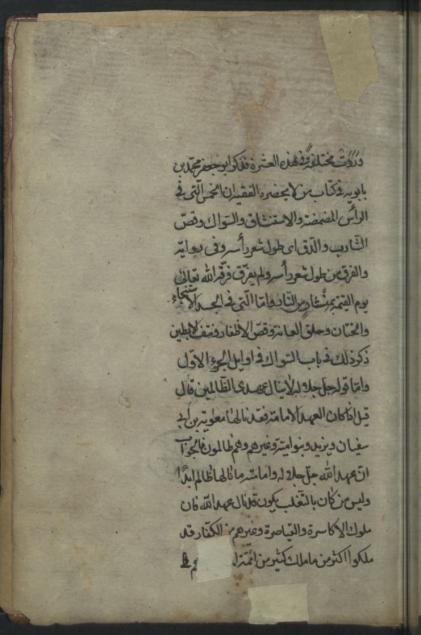 وردت مختلفة في هذه العشرة فذكر ابو جعفر محمد بن
بابويه في كتاب من لا يحضره الفقيه ان الخمس التي في
الرأس المضمضة والاستنشاق والسواك وقص
الشارب والفرق لمن طول شعر رأسه وفي رواية
والفرق من طول شعر رأسه ولم يفرق فرقه الله تعالى
يوم القيمة بمنشار من النار واما التي في الجسد الاستنجاء
والختان وحلق العانة وقص الاظفار ونتف الابطين
ذكر ذلك في باب السواك في اوايل الجزء الاول
واما قوله جل جلاله لا ينال عهدي الظالمين فان
قيل اذا كان العهد الامامة فقد نالها معوية بن ابي
سفيان ويزيد وبنو امية وغيرهم وهم ظالمون فالجواب
ان عهد الله جل جلاله وامامته ما نالها ظالم ابدا
وليس من كان بالتغلب يكون قد نال عهد الله فان
ملوك الاكاسرة والقياصرة وغيرهم من الكفار قد
ملكوا اكثر من ما ملك كثير من ائمة